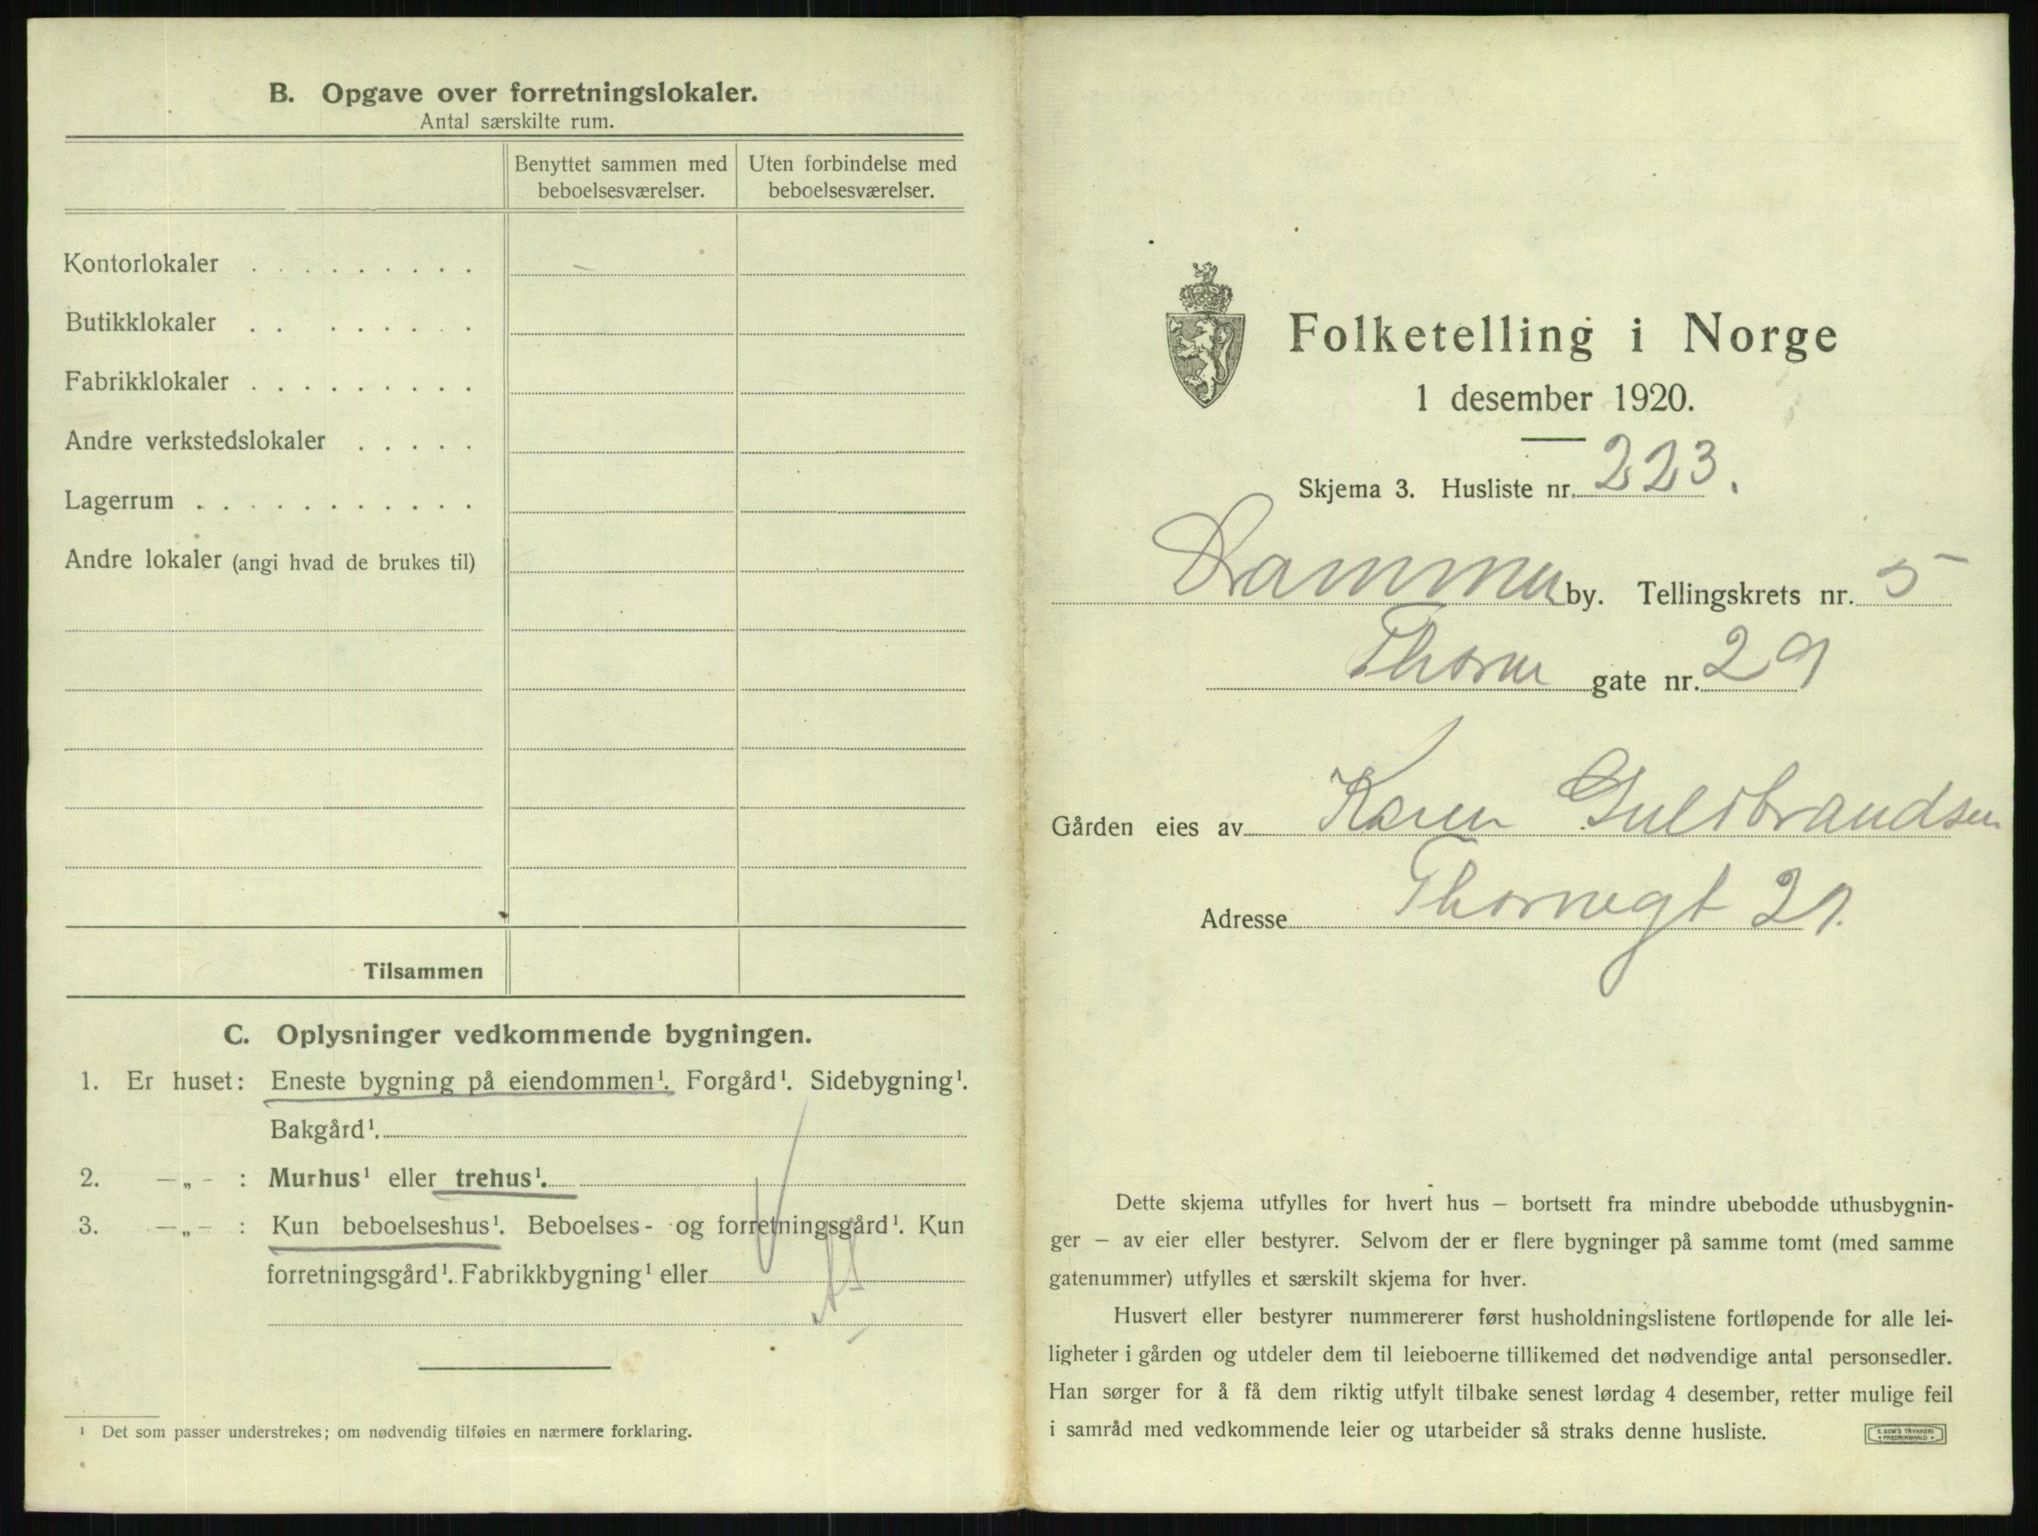 B. Opgave over forretningslokaler.
Antal særskilte rum.
Benyttet sammen med beboelsesværelser.
Uten forbindelse med beboelsesværelser.
Kontorlokaler . . . . . . . . .
Butikklokaler . . . . . . . .
Fabrikklokaler . . . . . . . . .
Andre verkstedslokaler . . . . .
Lagerrum . . . . . . . . . . .
Andre lokaler (angi hvad de brukes til)
Tilsammen
C. Oplysninger vedkommende bygningen.
1. Er huset: Eneste bygning på eiendommen¹. Forgård¹. Sidebygning¹.
Bakgård¹.
2. —„— : Murhus¹ eller trehus¹.
3. —„— : Kun beboelseshus¹. Beboelses- og forretningsgård¹. Kun
forretningsgård¹. Fabrikkbygning¹ eller
¹ Det som passer understrekes; om nødvendig tilføies en nærmere forklaring.
Folketelling i Norge
1 desember 1920.
Skjema 3. Husliste nr. 223.
Drammen by. Tellingskrets nr. 5
Thorne gate nr. 29
Gården eies av Karen Guldbrandsen
Adresse Thornegt 29.
Dette skjema utfylles for hvert hus – bortsett fra mindre ubebodde uthusbygnin-
ger – av eier eller bestyrer. Selvom der er flere bygninger på samme tomt (med samme
gatenummer) utfylles et særskilt skjema for hver.
Husvert eller bestyrer nummererer først husholdningslistene fortløpende for alle lei-
ligheter i gården og utdeler dem til leieboerne tillikemed det nødvendige antal personsedler.
Han sørger for å få dem riktig utfylt tilbake senest lørdag 4 desember, retter mulige feil
i samråd med vedkommende leier og utarbeider så straks denne husliste.
E. SEM'S TRYKKERI
FREDRIKSHALD